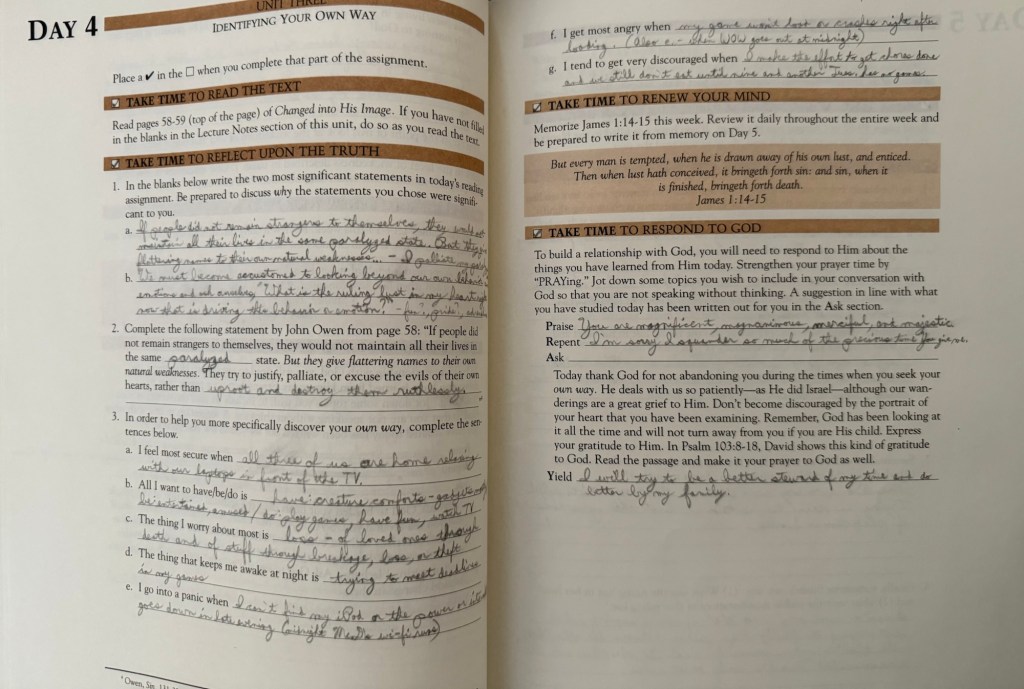 DAY 4
UNIT THREE
IDENTIFYING YOUR OWN WAY
Place a ✔ in the ☐ when you complete that part of the assignment.
☑ TAKE TIME TO READ THE TEXT
Read pages 58-59 (top of the page) of Changed into His Image. If you have not filled
in the blanks in the Lecture Notes section of this unit, do so as you read the text.
☑ TAKE TIME TO REFLECT UPON THE TRUTH
1. In the blanks below write the two most significant statements in today's reading
assignment. Be prepared to discuss why the statements you chose were signifi-
cant to you.
a. If people did not remain strangers to themselves, they would not
maintain all their lives in the same paralyzed state. But they give
flattering names to their own natural weaknesses... - I palliate
b. We must become accustomed to looking beyond our own behavior,
emotions and ask ourselves, "What is the ruling lust in my heart right
now that is driving this behavior or emotion." - fun, pride,
2. Complete the following statement by John Owen from page 58: "If people did
not remain strangers to themselves, they would not maintain all their lives in
the same paralyzed state. But they give flattering names to their own
natural weaknesses. They try to justify, palliate, or excuse the evils of their own
hearts, rather than uproot and destroy them ruthlessly."
3. In order to help you more specifically discover your own way, complete the sen-
tences below.
a. I feel most secure when all three of us are home relaxing
with our laptops in front of the TV.
b. All I want to have/be/do is have: creature comforts - gadgets
be: entertained, amused / do: play games, have fun, watch TV
c. The thing I worry about most is loss - of loved ones through
death and of stuff through breakage, loss, or theft
d. The thing that keeps me awake at night is trying to meet deadlines
in my games
e. I go into a panic when I can't find my iPod or the power or
goes down in late evening (midnight wi-fi runs)
f. I get most angry when my game won't load or crashes right after
loading. (Also e. - when WOW goes out at midnight)
g. I tend to get very discouraged when I make the effort to get chores done
and we still don't eat until nine and another has no games.
☑ TAKE TIME TO RENEW YOUR MIND
Memorize James 1:14-15 this week. Review it daily throughout the entire week and
be prepared to write it from memory on Day 5.
But every man is tempted, when he is drawn away of his own lust, and enticed.
Then when lust hath conceived, it bringeth forth sin: and sin, when it
is finished, bringeth forth death.
James 1:14-15
☑ TAKE TIME TO RESPOND TO GOD
To build a relationship with God, you will need to respond to Him about the
things you have learned from Him today. Strengthen your prayer time by
"PRAYing." Jot down some topics you wish to include in your conversation with
God so that you are not speaking without thinking. A suggestion in line with what
you have studied today has been written out for you in the Ask section.
Praise You are magnificent, magnanimous, merciful, and majestic.
Repent I'm sorry I squander so much of the precious time you give me.
Ask
Today thank God for not abandoning you during the times when you seek your
own way. He deals with us so patiently—as He did Israel—although our wan-
derings are a great grief to Him. Don't become discouraged by the portrait of
your heart that you have been examining. Remember, God has been looking at
it all the time and will not turn away from you if you are His child. Express
your gratitude to Him. In Psalm 103:8-18, David shows this kind of gratitude
to God. Read the passage and make it your prayer to God as well.
Yield I will try to be a better steward of my time and do
better by my family.
Owen, Sin